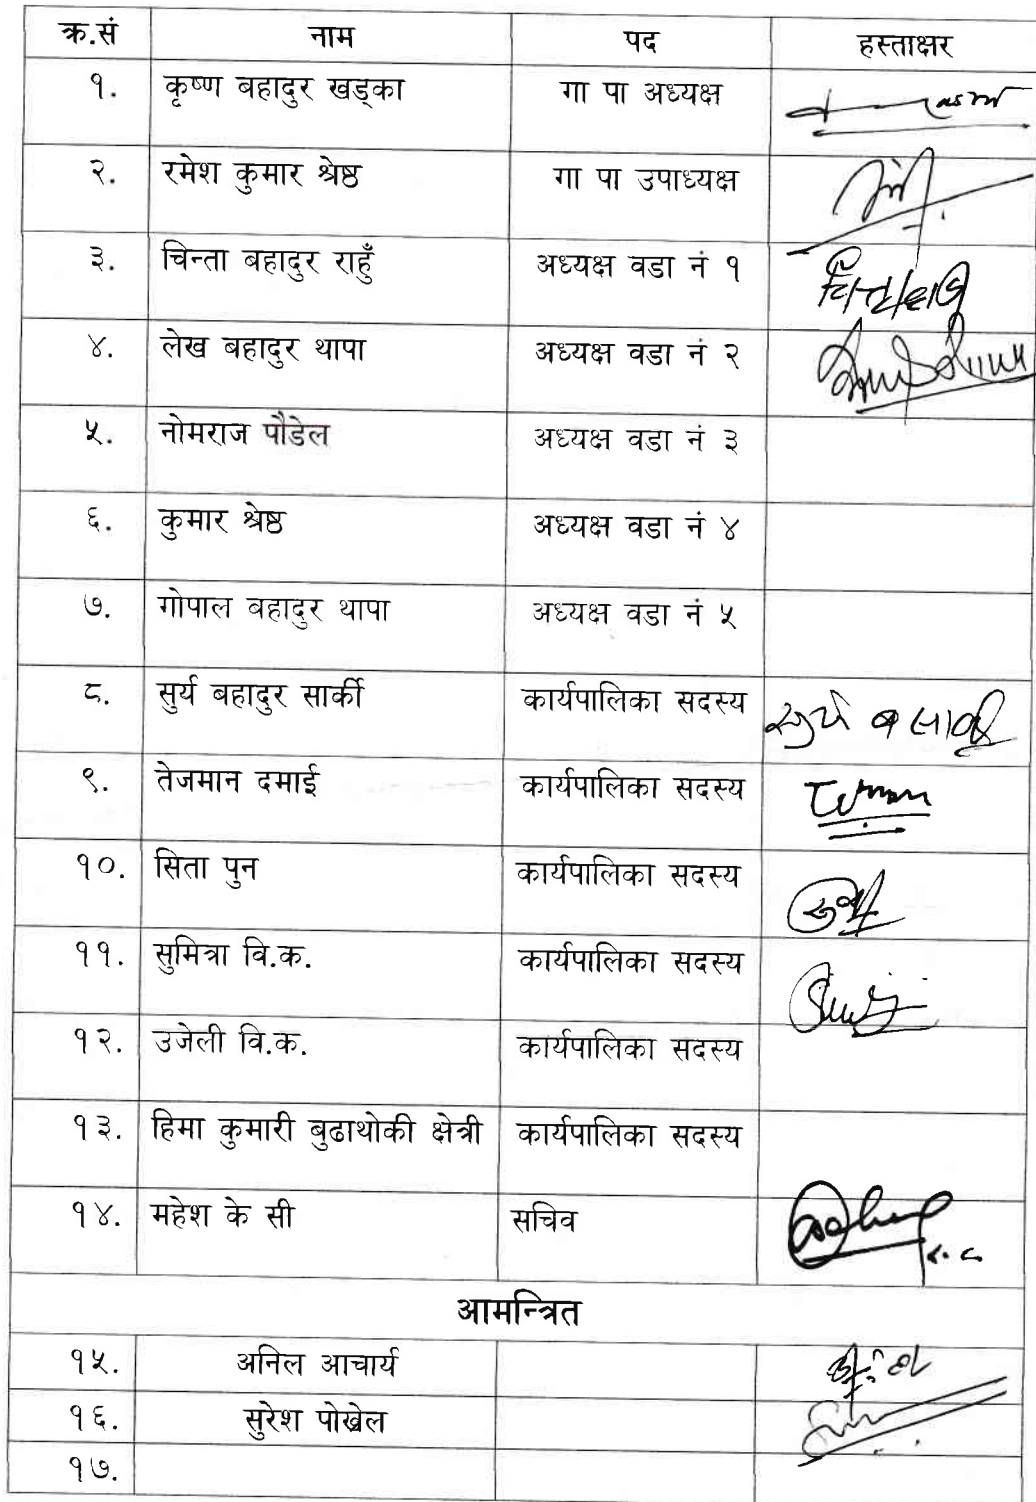 क्र.सं नाम पद हस्ताक्षर
१. कृष्ण बहादुर खड्का गा पा अध्यक्ष
२. रमेश कुमार श्रेष्ठ गा पा उपाध्यक्ष
३. चिन्ता बहादुर राहुँ अध्यक्ष वडा नं १
४. लेख बहादुर थापा अध्यक्ष वडा नं २
५. नोमराज पौडेल अध्यक्ष वडा नं ३
६. कुमार श्रेष्ठ अध्यक्ष वडा नं ४
७. गोपाल बहादुर थापा अध्यक्ष वडा नं ५
८. सुर्य बहादुर सार्की कार्यपालिका सदस्य
९. तेजमान दमाई कार्यपालिका सदस्य
१०. सिता पुन कार्यपालिका सदस्य
११. सुमित्रा वि.क. कार्यपालिका सदस्य
१२. उजेली वि.क. कार्यपालिका सदस्य
१३. हिमा कुमारी बुढाथोकी क्षेत्री कार्यपालिका सदस्य
१४. महेश के सी सचिव
आमन्त्रित
१५. अनिल आचार्य
१६. सुरेश पोख्रेल
१७.